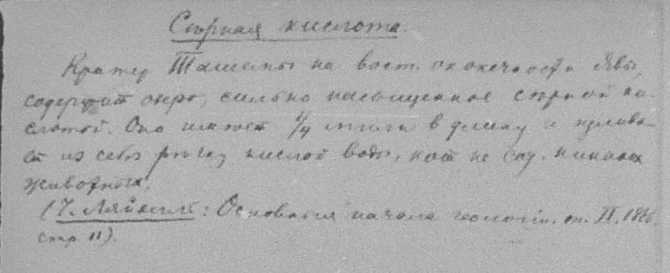 Сѣрная кислота.
Кратер Ташемъ на вост. оконечности Явы,
содержит озеро, сильно насыщенное сѣрной ки-
слотой. Оно имѣет 1/4 мили в длину и излива-
ет из себя рѣчку кислой воды, кот. не сод. никаких
животных.
(Ч. Ляйелль: Основныя начала геологіи. т. II. 1866.
стр. 11).